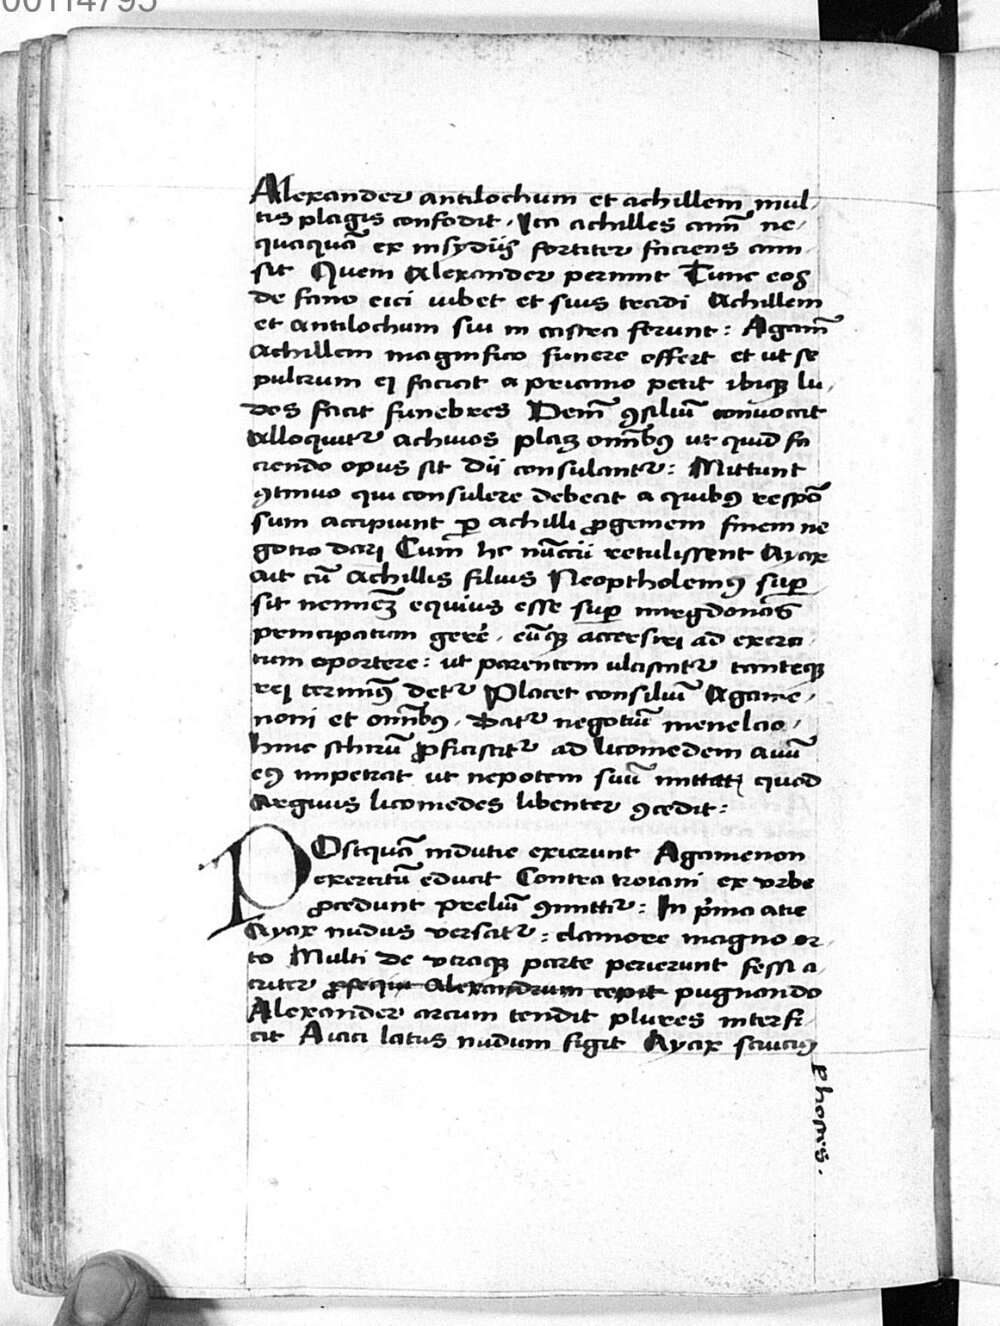 00114795
Alexander antilochum et achillem mul
tis plagis confodit. Ita achilles aniā ne
quaquā ex insydiis fortiter faciens ami
sit Quem Alexander perimit Tunc eos
de fano eici iubet et sius tradi Achillem
et antilochum sui in castra ferunt: Agam̄
Achillem magnifico funere effert et ut se
pulcrum ei faciat a priamo petit ibiqꝫ lu
dos facit funebres Dem̄ ꝯsiliū convocat
Alloquitr achiuos plaꝫ omībꝰ ut quid fa
ciendo opus sit dii consulantr: Mittunt
ꝯtinuo qui consulere debeat a quibꝰ respō
sum accipiunt ꝑ achilli ꝓgeniem finem ne
gotio dari Cum̄ hc nūcii retulissent Ayax
ait cū Achillis filius Neoptholemꝰ suꝑ
sit neminēꝫ equius esse suꝑ
principatum gerē. eūqꝫ accersiri ad exerci
tum oportere: ut parentem ulcisintr tanteqꝫ
rei terminꝰ detr Placet consiliū Agame
noni et omībꝰ. Datr negotiū menelao
hinc schirū ꝓficiscitr ad licomedem auū
eꝰ impetrat ut nepotem suū mittat quod
Argiuis licomedes libenter ꝯcedit:
POstquā indutie exierunt Agamenon
exercitū educit Contra troiani ex urbe
ꝓcedunt preliū ꝯmittir: In p̄ma acie
Ayax nudus versatr: clamore magno or
to Multi de utraqꝫ parte perierunt fessi a
criter ꝓsequi Alexandrum cepit pugnando
Alexander arcum tendit plures interfi
cit Aiaci latus nudum figit Ayax sauciꝰ